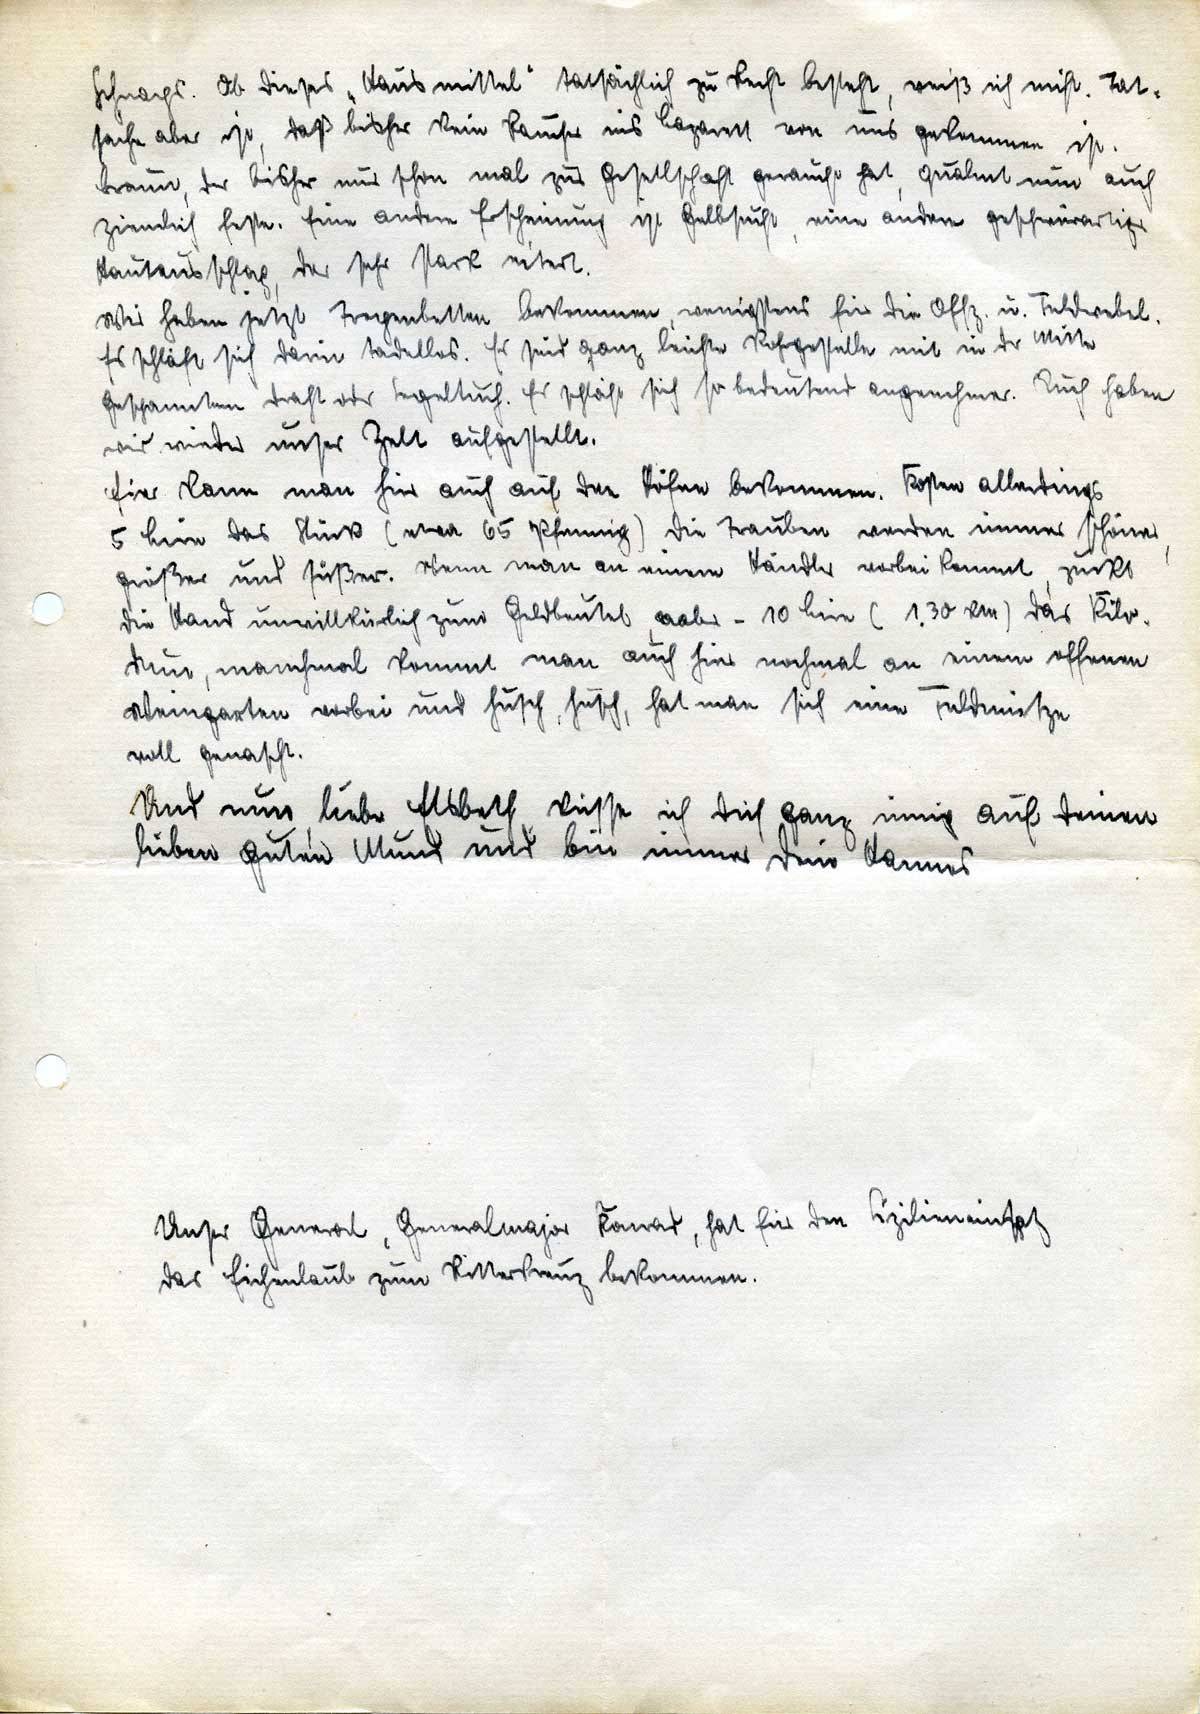 Schnaps. Ob dieses „Hausmittel" tatsächlich zu Recht besteht, weiß ich nicht. Tat-
sache aber ist, daß bisher kein Raucher ins Lazarett von uns gekommen ist.
Braun, der bisher nur schon mal zur Gesellschaft geraucht hat, qualmt nun auch
ziemlich feste. Eine andere Erscheinung ist Gelbsucht, eine andere geschwürartiger
Hautausschlag, der sehr stark eitert.
Wir haben jetzt Tragenbetten bekommen, wenigstens für die Offz. u. Feldwebel.
Es schläft sich darin tadellos. Es sind ganz leichte Rohrgestelle mit in der Mitte
gespanntem Draht oder Segeltuch. Es schläft sich so bedeutend angenehmer. Auch haben
wir wieder unser Zelt aufgestellt.
Eier kann man hier auch auf den Höfen bekommen. Kosten allerdings
5 Lire das Stück (etwa 65 Pfennig) Die Trauben werden immer schöner,
größer und süßer. Wenn man an einem Händler vorbei kommt, zuckt
die Hand unwillkürlich zum Geldbeutel, aber - 10 Lire (1,30 RM) das Kilo.
Nun, manchmal kommt man auch hier nochmal an einem offenen
Weingarten vorbei und husch, husch, hat man sich eine Feldmütze
voll genascht.
Und nun, liebe Elsbeth, küsse ich Dich ganz innig auf Deinen
lieben guten Mund und bin immer Dein Hannes
Unser General, Generalmajor Konrad, hat für den Sizilieneinsatz
das Eichenlaub zum Ritterkreuz bekommen.